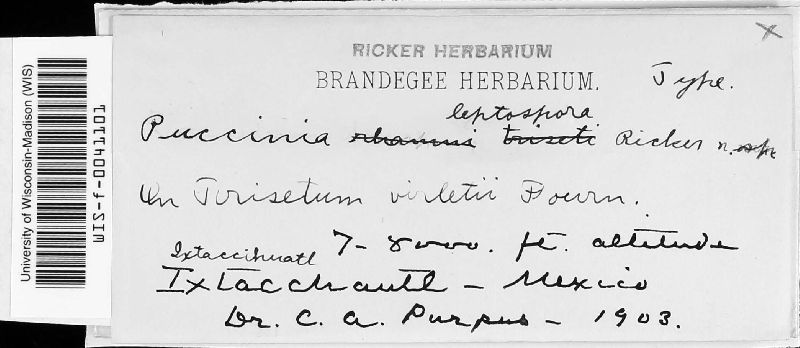 RICKER HERBARIUM
BRANDEGEE HERBARIUM.
Type.
leptospora
Puccinia rhamni triseti Ricker n. sp.
On Trisetum virletii Fourn.
Ixtaccihuatl
7-8000. ft. altitude
Ixtacchautl - Mexico
Dr. C. A. Purpus - 1903.
University of Wisconsin-Madison (WIS)
WIS-f-0041101